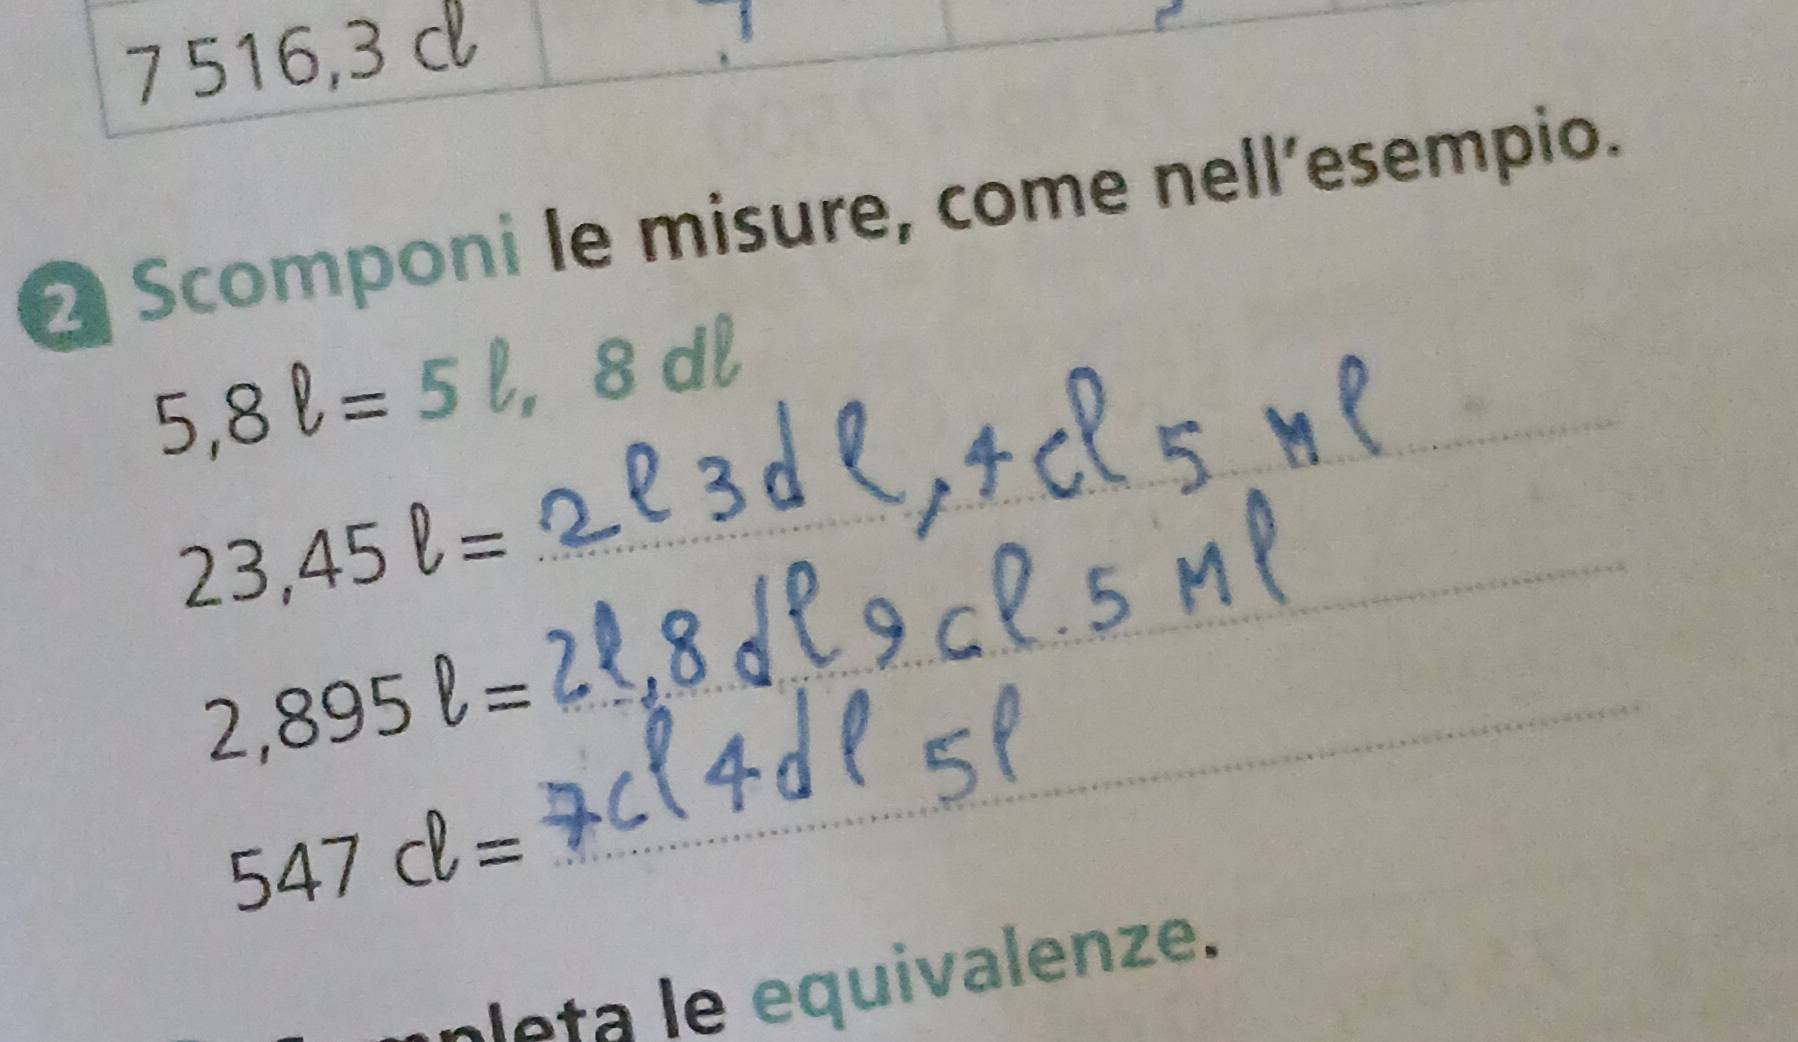 7 516,3 cl
2 Scomponi le misure, come nell'esempio.
5,8 l = 5 l, 8 dl
23,45 l = 2 l 3 d l, 4 cl 5 Ml
2,895 l = 2l,8 dl 9 cl. 5 Ml
547 cl = 7cl 4dl 5l
le equivalenze.